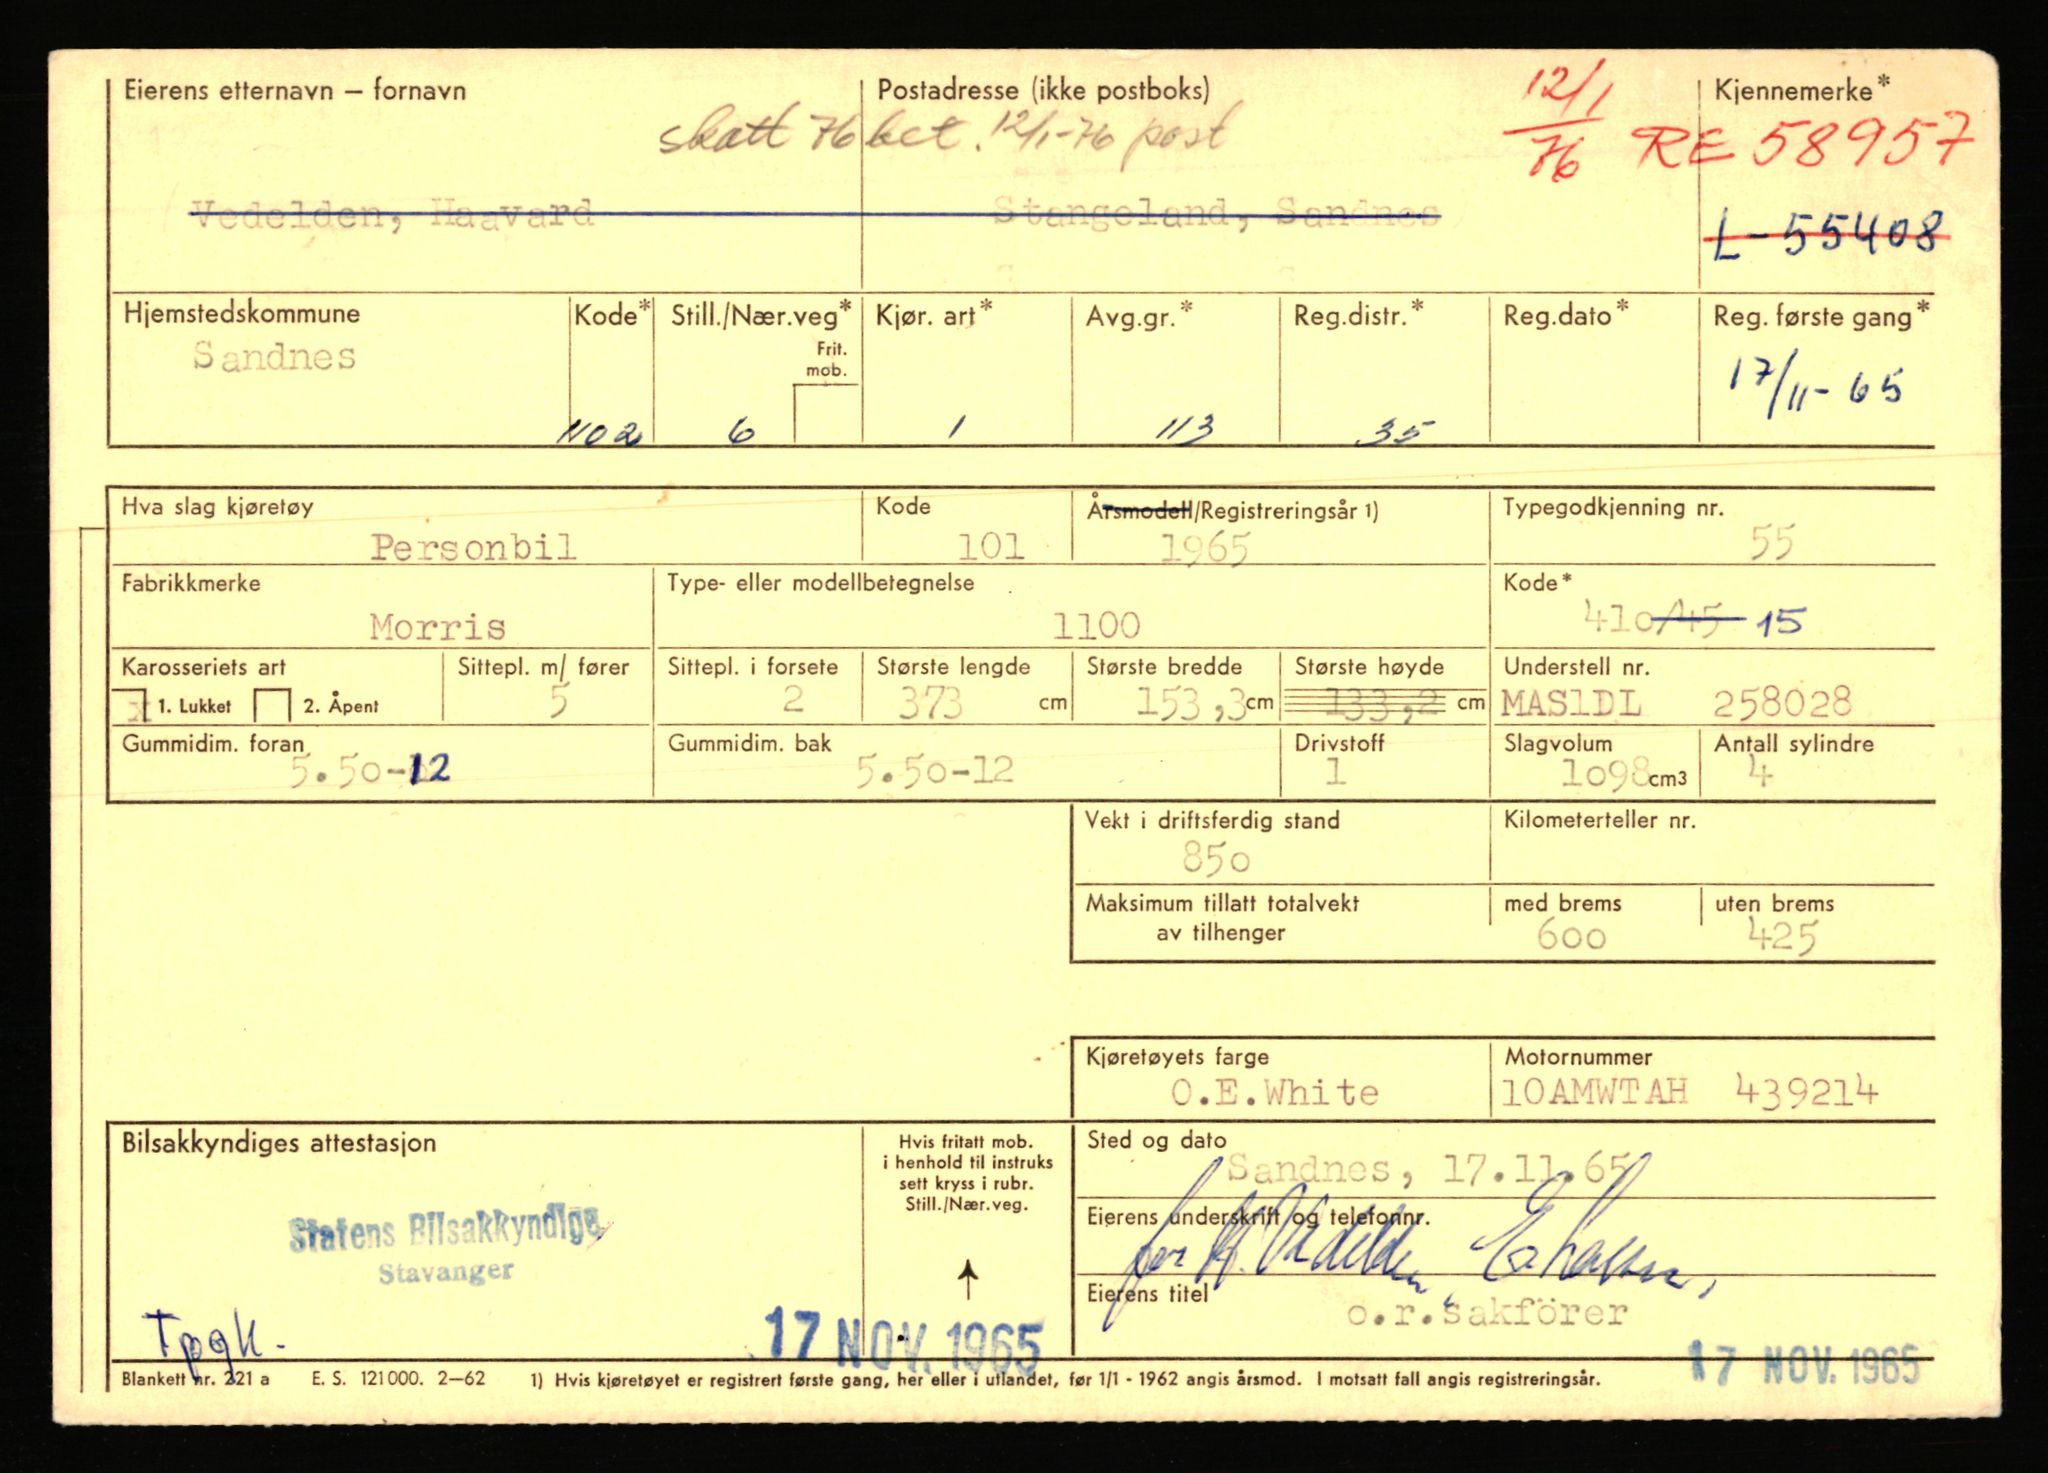 Eierens etternavn – fornavn Postadresse (ikke postboks) 12/1 76 Kjennemerke*
skatt 76 bet. 12/1-76 post RE 58957
Vedelden, Haavard Stangeland, Sandnes L-55408
Hjemstedskommune Kode* Still./Nær.veg* Kjør. art* Avg.gr.* Reg.distr.* Reg.dato* Reg. første gang*
Sandnes Frit. mob. 17/11-65
1102 6 1 113 35
Hva slag kjøretøy Kode Årsmodell/Registreringsår 1) Typegodkjenning nr.
Personbil 101 1965 55
Fabrikkmerke Type- eller modellbetegnelse Kode*
Morris 1100 410/45 15
Karosseriets art Sittepl. m/ fører Sittepl. i forsete Største lengde Største bredde Største høyde Understell nr.
x 1. Lukket 2. Åpent 5 2 373 cm 153,3 cm 133,2 cm MAS1DL 258028
Gummidim. foran Gummidim. bak Drivstoff Slagvolum Antall sylindre
5.50-12 5.50-12 1 1098 cm3 4
Vekt i driftsferdig stand Kilometerteller nr.
850
Maksimum tillatt totalvekt med brems uten brems
av tilhenger 600 425
Kjøretøyets farge Motornummer
O.E.White 10AMWTAH 439214
Bilsakkyndiges attestasjon Hvis fritatt mob. Sted og dato
i henhold til instruks Sandnes, 17.11.65
sett kryss i rubr.
Still./Nær.veg. Eierens underskrift og telefonnr.
Statens Bilsakkyndige for H. Vedelden
Stavanger
Eierens titel
o.r.sakförer
Tpgk.
17 NOV. 1965 17 NOV. 1965
Blankett nr. 221 a E. S. 121000. 2–62 1) Hvis kjøretøyet er registrert første gang, her eller i utlandet, før 1/1 - 1962 angis årsmod. I motsatt fall angis registreringsår.